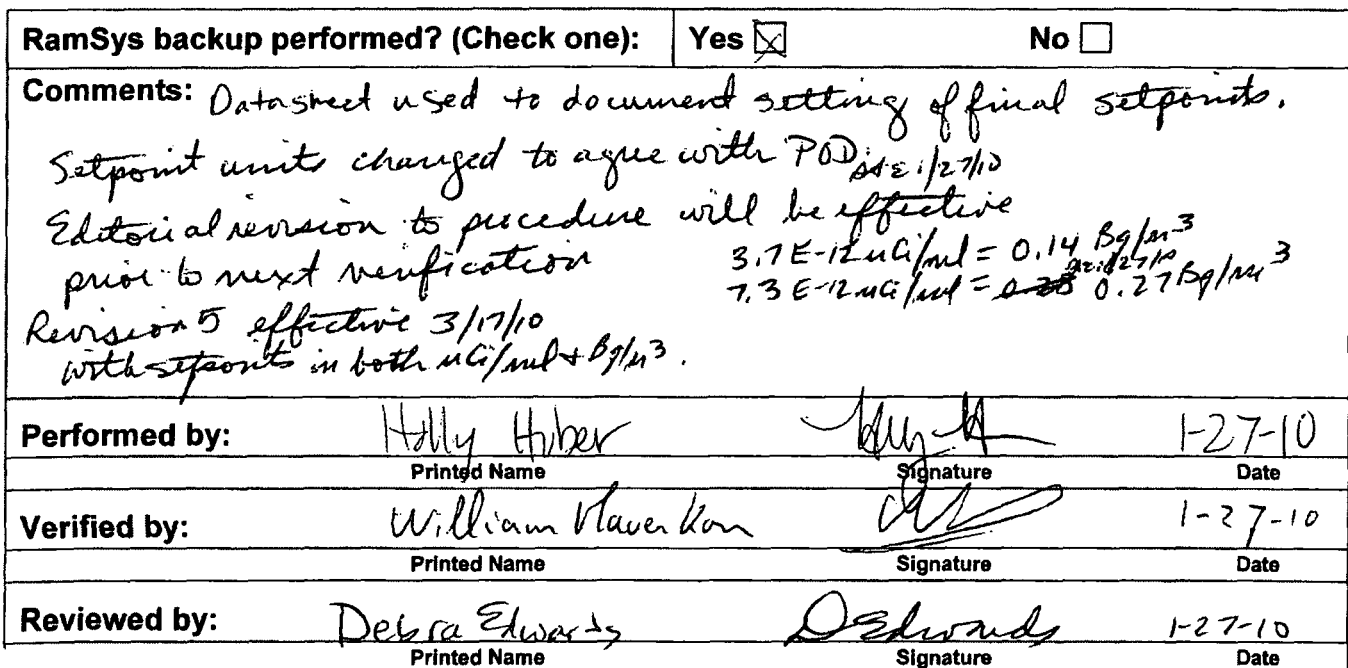 RamSys backup performed? (Check one): Yes ☒ No ☐
Comments: Datasheet used to document setting of final setpoints.
Setpoint units changed to agree with POD. 1/27/10
Editorial revision to procedure will be effective
prior to next verification
3.7E-12 uCi/ml = 0.14 Bq/m³
1/27/10
7.3E-12 uCi/ml = 0.27 Bq/m³
Revision 5 effective 3/17/10
with setpoints in both uCi/ml + Bq/m³.
Performed by: Holly Huber 1-27-10
Printed Name Signature Date
Verified by: William 1-27-10
Printed Name Signature Date
Reviewed by: Debra Edwards DEdwards 1-27-10
Printed Name Signature Date